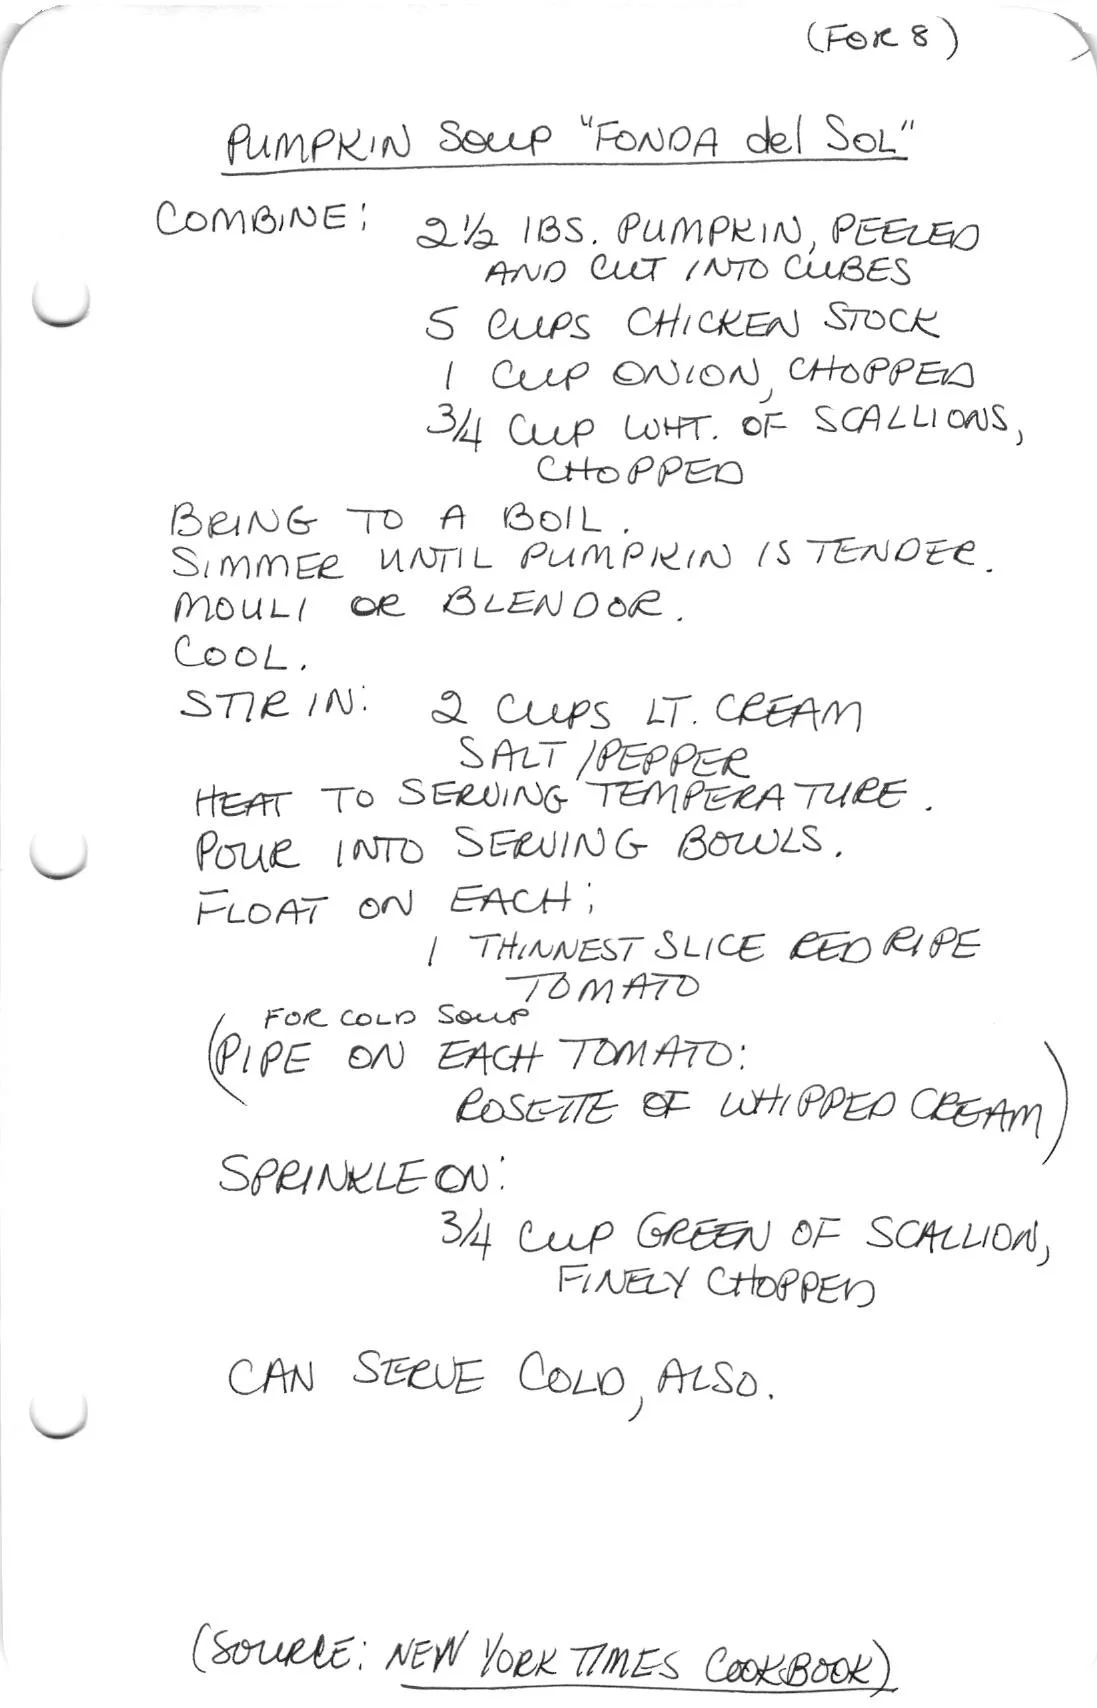 (FOR 8)
PUMPKIN SOUP "FONDA del SOL"
COMBINE: 2 1/2 lBS. PUMPKIN, PEELED
AND CUT INTO CUBES
5 CUPS CHICKEN STOCK
1 CUP ONION, CHOPPED
3/4 CUP WHT. OF SCALLIONS,
CHOPPED
BRING TO A BOIL.
SIMMER UNTIL PUMPKIN IS TENDER.
MOULI OR BLENDOR.
COOL.
STIR IN: 2 CUPS LT. CREAM
SALT/PEPPER
HEAT TO SERVING TEMPERATURE.
POUR INTO SERVING BOWLS.
FLOAT ON EACH:
1 THINNEST SLICE RED RIPE
TOMATO
FOR COLD SOUP
(PIPE ON EACH TOMATO:
ROSETTE OF WHIPPED CREAM)
SPRINKLE ON:
3/4 CUP GREEN OF SCALLION,
FINELY CHOPPED
CAN SERVE COLD, ALSO.
(SOURCE: NEW YORK TIMES COOKBOOK)